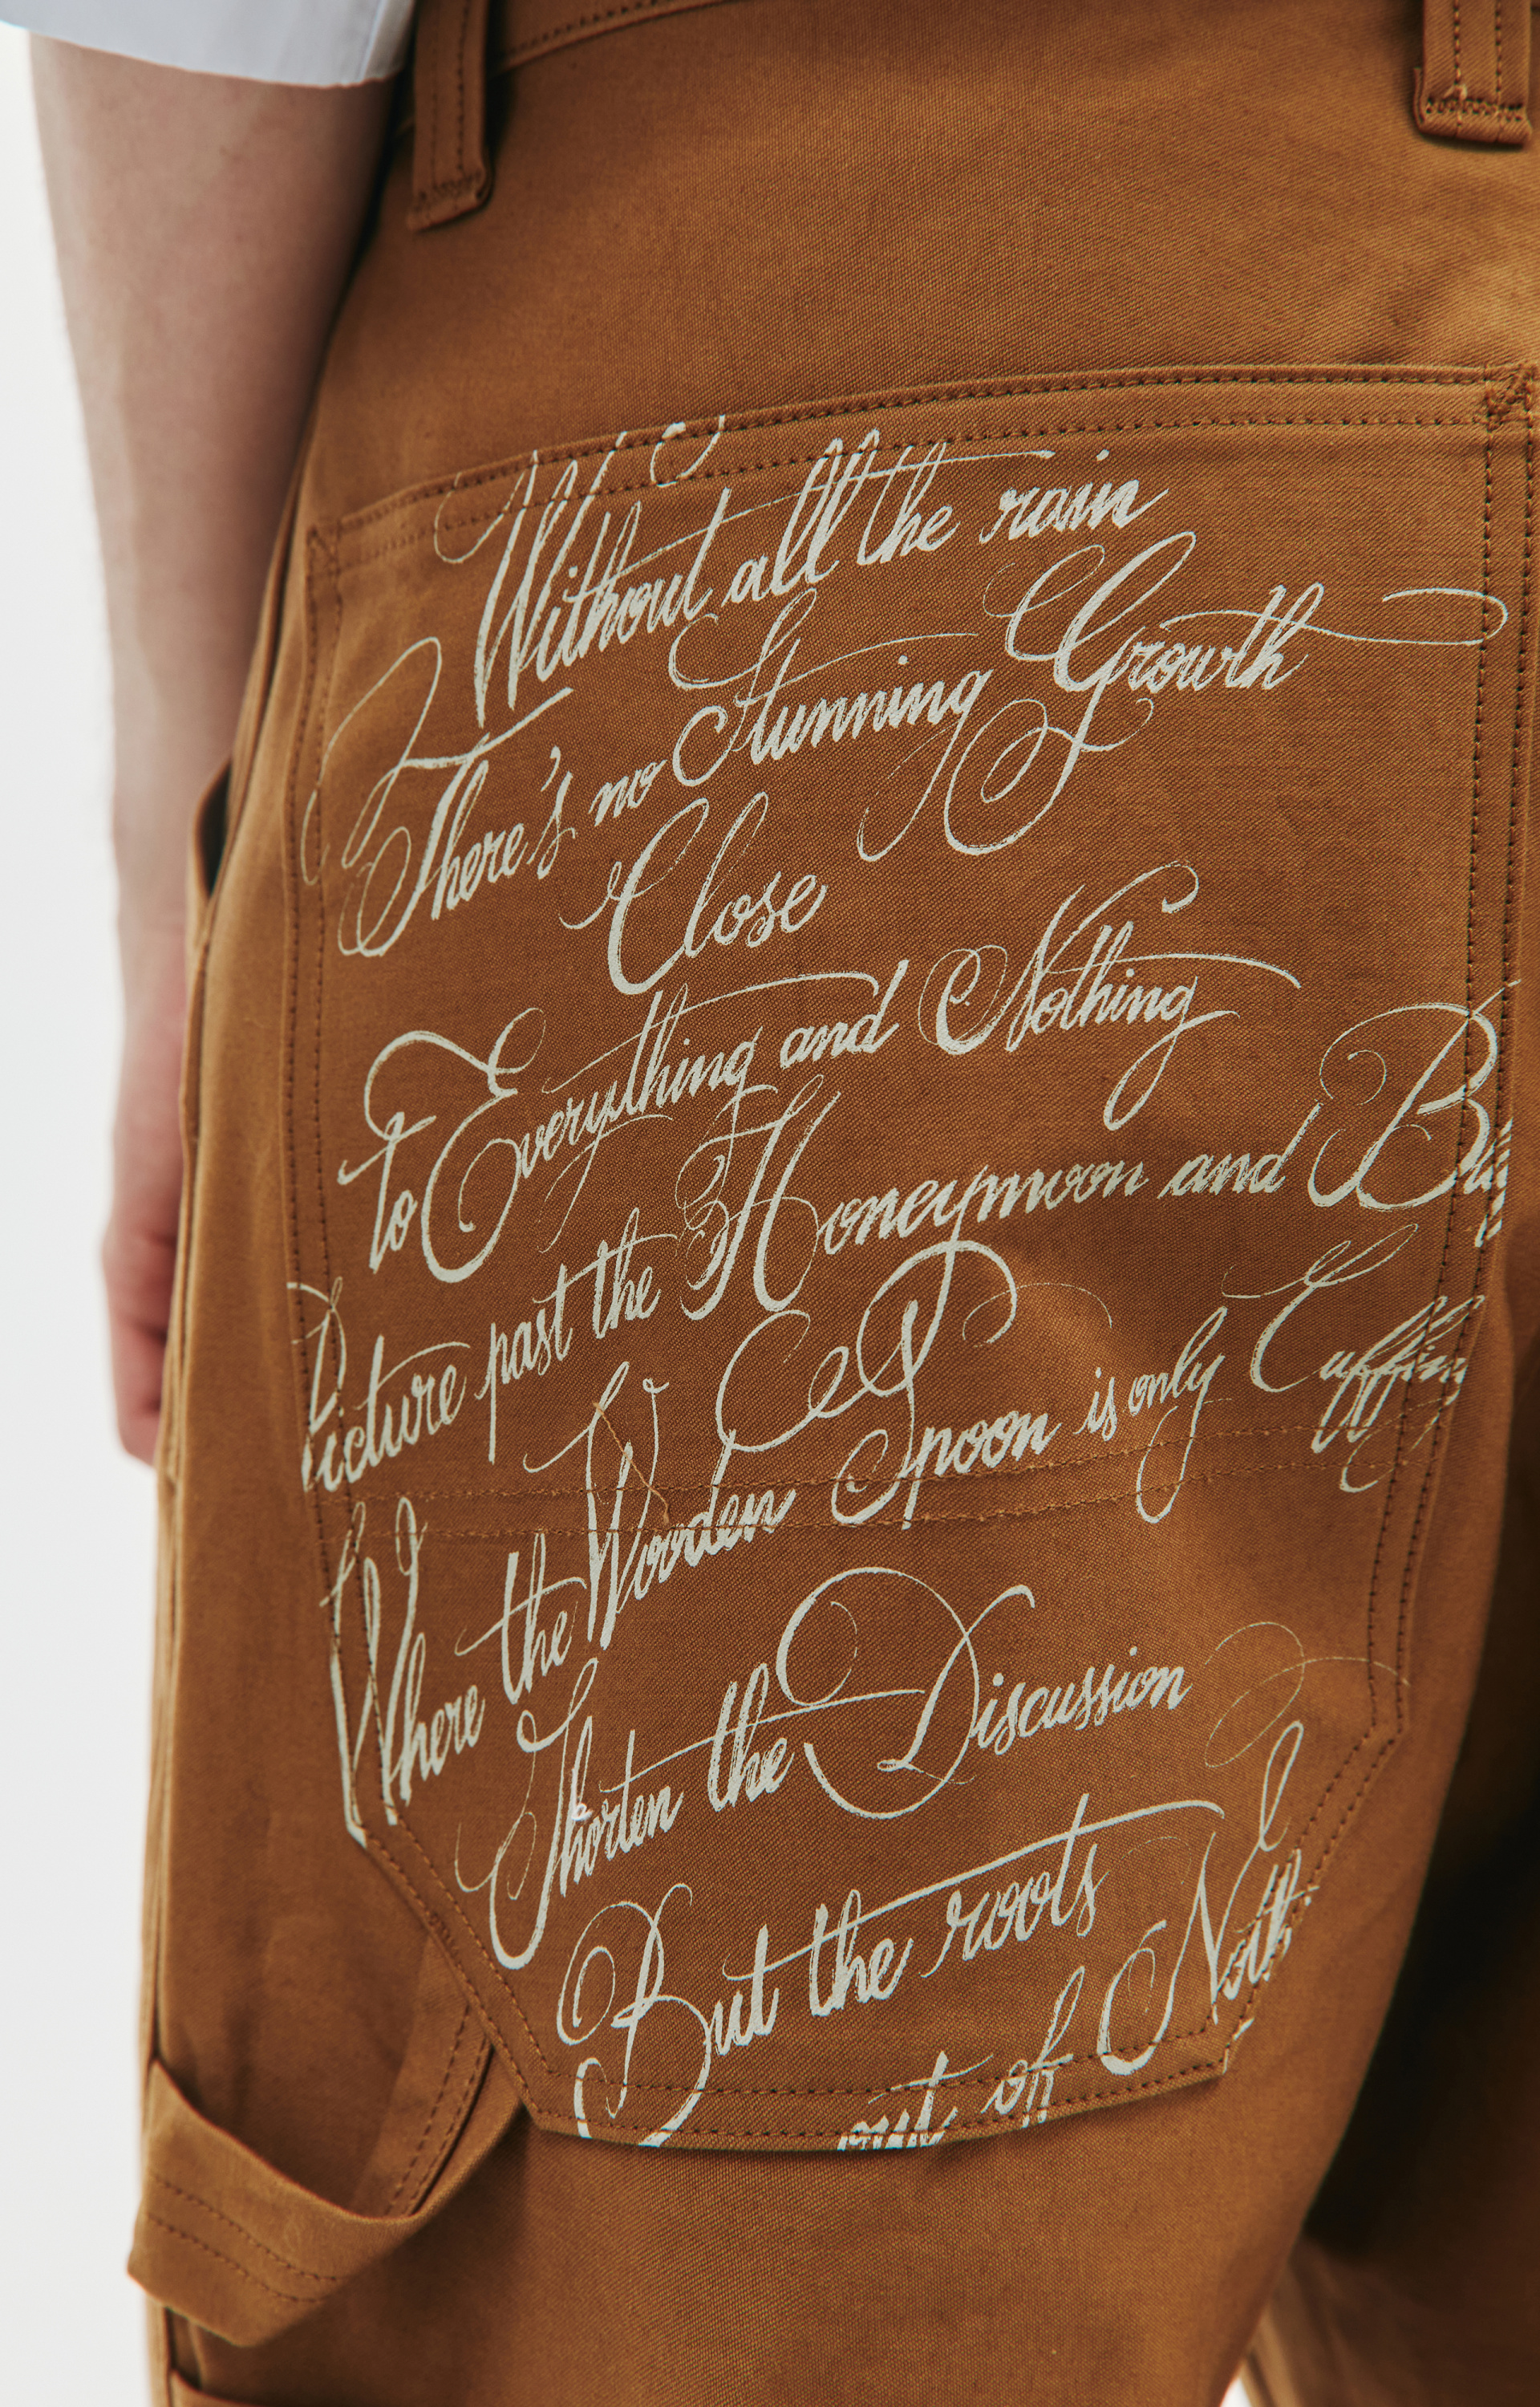 Without all the rain
There's no Stunning Growth
Close
to Everything and Nothing
Picture past the Honeymoon and
Where the Wooden Spoon is only Cuffing
Shorten the Discussion
But the roots
out of